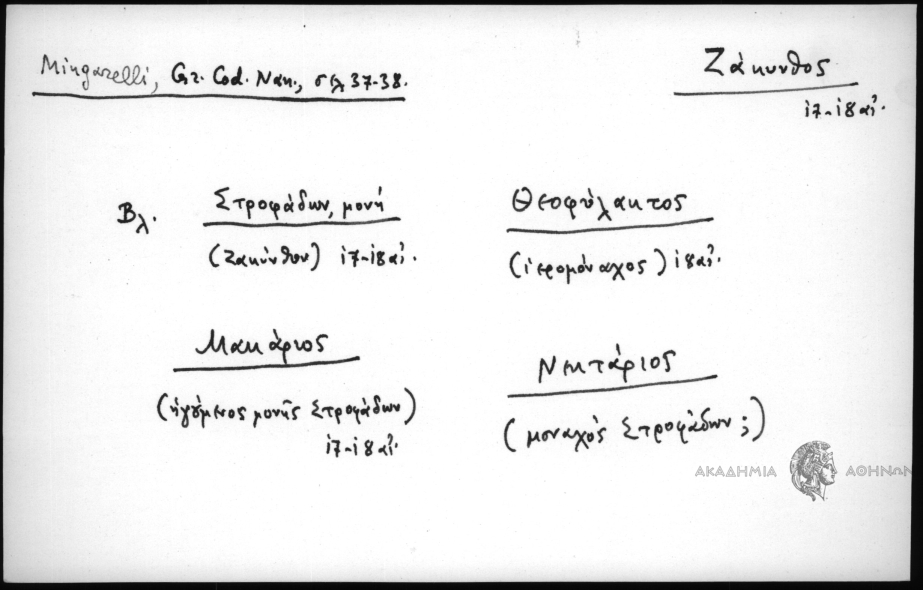 Mingarelli, Gr. Cod. Nan., σελ 37-38.
Ζάκυνθος
17-18 αἰ.
Βλ. Στροφάδων, μονή
(Ζακύνθου) 17-18 αἰ.
Θεοφύλακτος
(ἱερομόναχος) 18 αἰ.
Μακάριος
(ἡγούμενος μονῆς Στροφάδων)
17-18 αἰ.
Νεκτάριος
(μοναχός Στροφάδων;)
ΑΚΑΔΗΜΙΑ ΑΘΗΝΩΝ